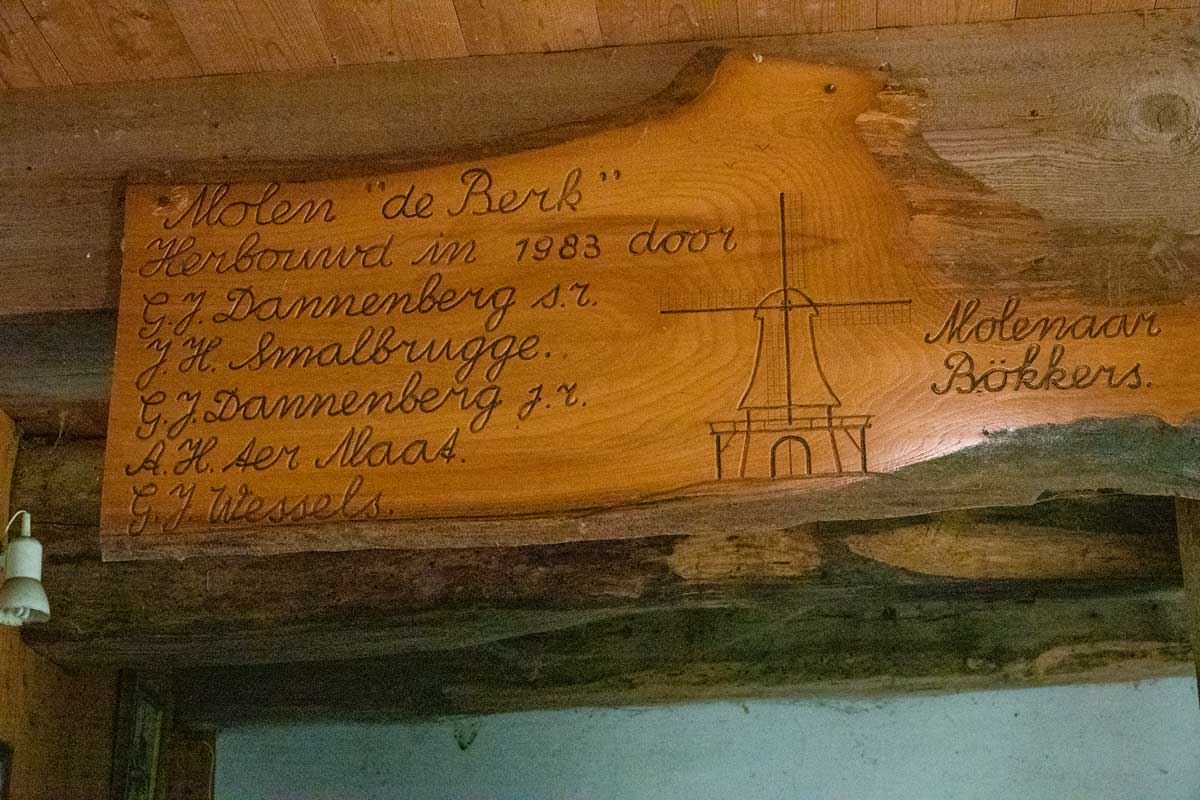 Molen "de Berk"
Herbouwd in 1983 door
G.J. Dannenberg s.r.
J.H. Smalbrugge.
G.J. Dannenberg j.r.
A.H. ter Maat.
G.J Wessels.
Molenaar
Bökkers.